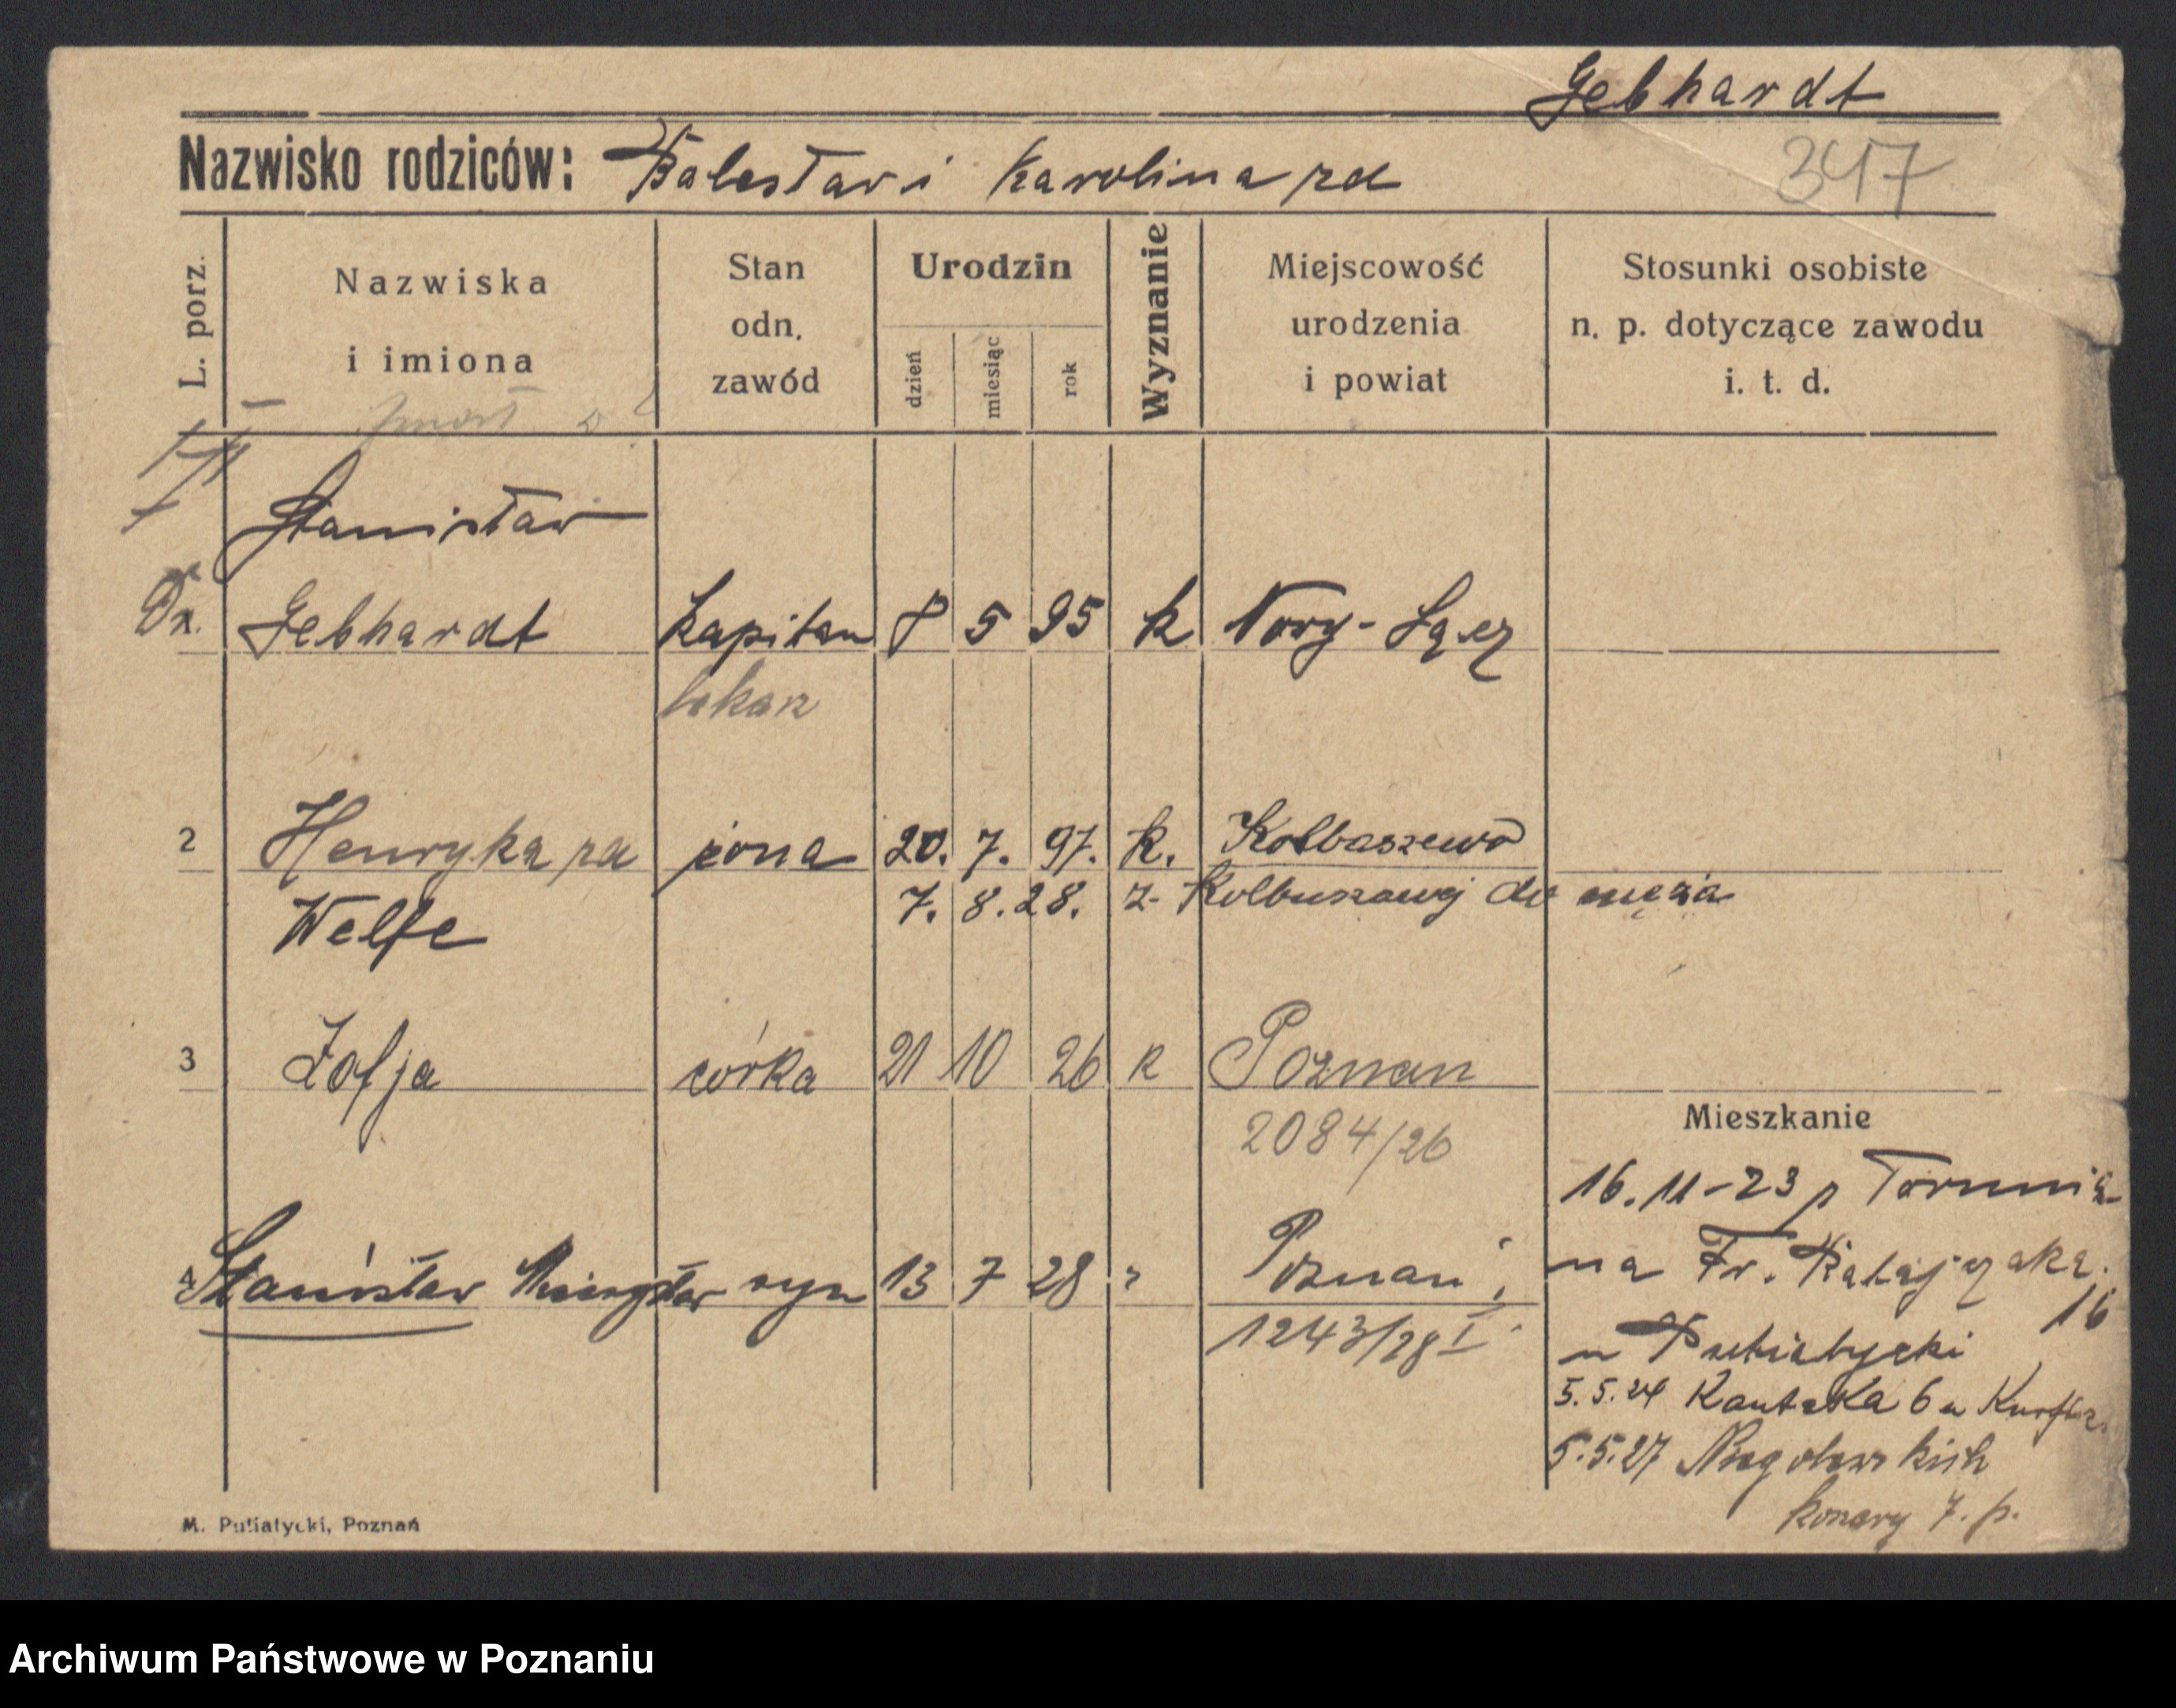 Gebhardt
Nazwisko rodziców: Bolesław i Karolina zd
347
L. porz.
Nazwiska
i imiona
Stan
odn.
zawód
Urodzin
dzień
miesiąc
rok
Wyznanie
Miejscowość
urodzenia
i powiat
Stosunki osobiste
n. p. dotyczące zawodu
i. t. d.
Stanisław
Dr. Gebhardt kapitan 8 5 95 k Nowy-Sącz
lekarz
2 Henryka zd żona 20. 7. 97. k. Kolbaszewo
Welfe 7. 8. 28. z Kolbuszowej do męża
3 Zofja córka 21 10 26 k Poznań
2084/26
4 Stanisław syn 13 7 28 " Poznań
1243/28 I
Mieszkanie
16.11-23 z Torunia
na Fr. Ratajczaka
16
u Putiatycki
5.5.24 Kantaka 6 u
5.5.27 Niegolewskich
koszary 7. p.
M. Putiatycki, Poznań
Archiwum Państwowe w Poznaniu